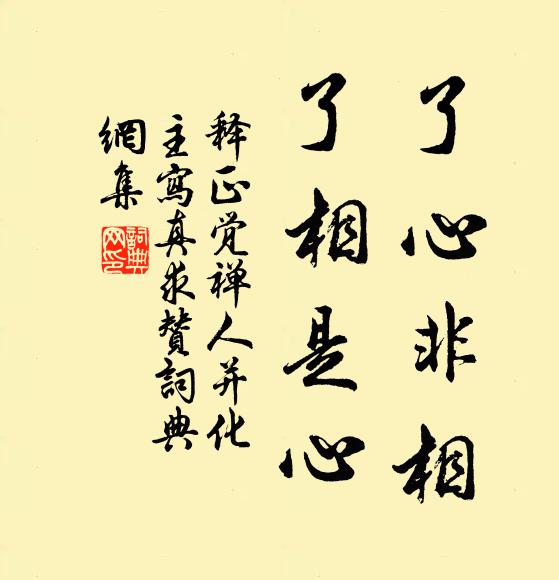 了心非相
了相是心
释正觉禅人并化
主寫真求赞詞典
網集
詞典网印